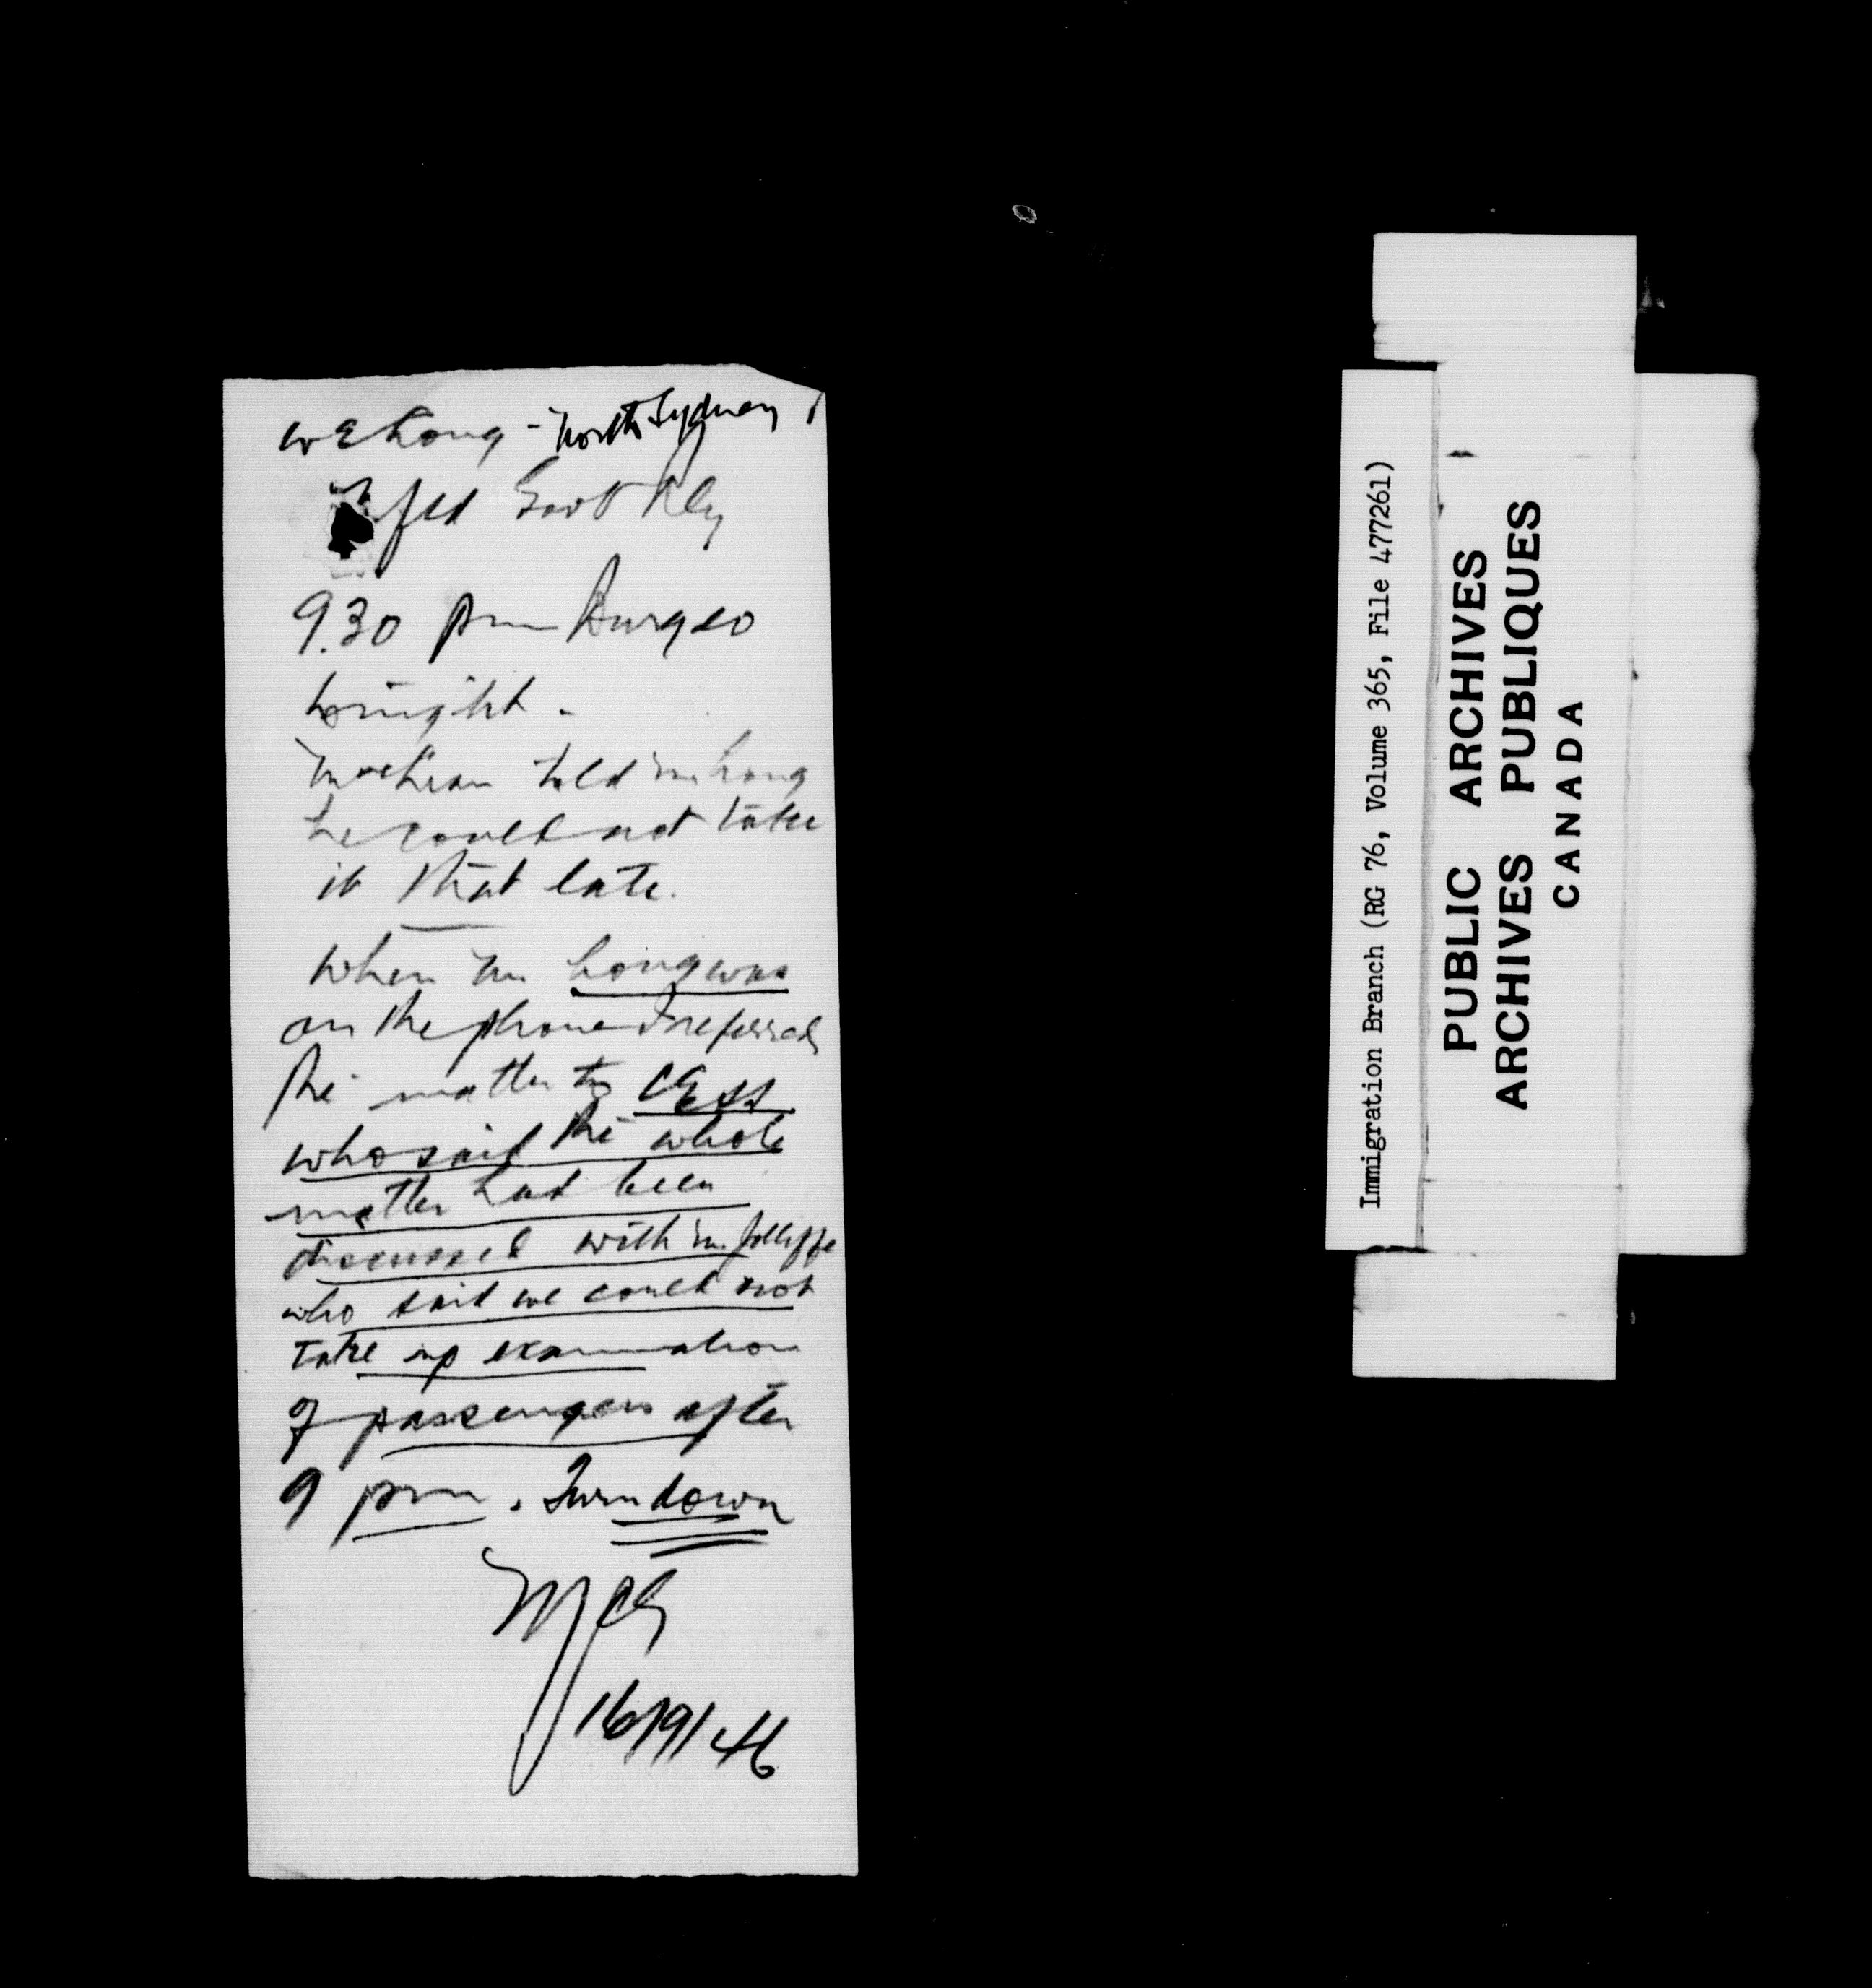 W E Long - North Sydney
Nfld Govt Rly
9.30 pm Burgeo
tonight -
told Mr Long
he could not take
it that late.
When Mr Long was
on the phone I referred
the matter to CESS
who said the whole
matter had been
discussed with Mr Jolliffe
who said we could not
take up examination
of passengers after
9 pm. Turn down
16/9/46
Immigration Branch (RG 76, Volume 365, File 477261)
PUBLIC ARCHIVES
ARCHIVES PUBLIQUES
CANADA